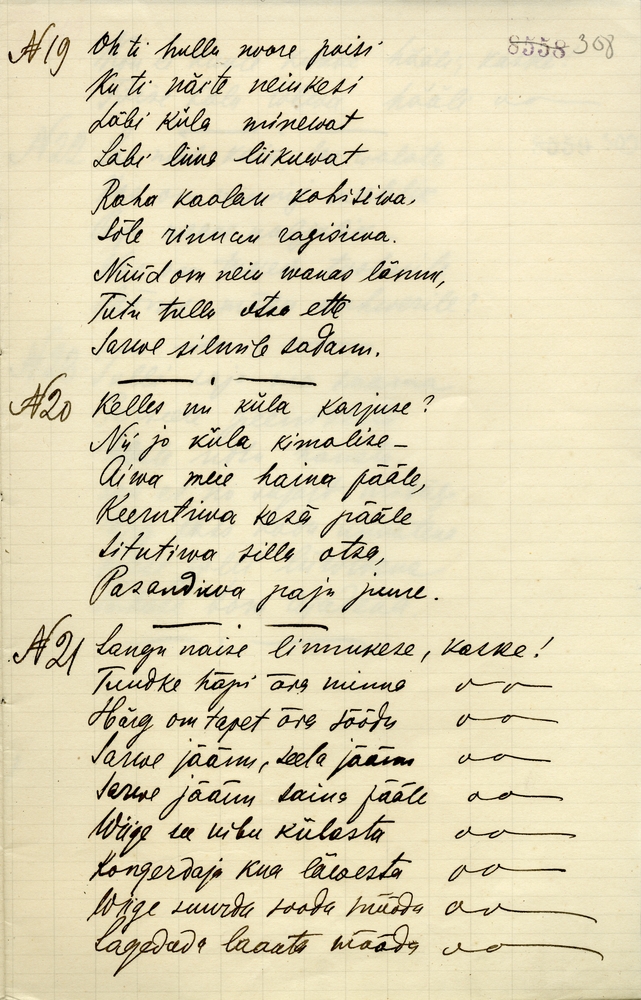 8558 308
№19 Oh ti hullu noore poisi
Ku ti näite neiukesi
Läbi küla minewat
Läbi liina liikuwat
Raha kaolan kohisiwa,
Sõle rinnan ragisiwa.
Nüüd om neiu wanas lännu,
Tutu tullu otsa ette
Sarwe silmile sadanu.
№20 Kelles nu küla karjuse?
Nii jo küla kimalise –
Aiwa meie haina pääle,
Keerutiwa kesä pääle
Situtiwa silla otsa,
Pasandiwa paju juure.
№21 Langu naise linnukese, kaske!
Tundke häpi ära minna
Härg om tapet ära söödu
Sarwe jäänu, seela jäänu
Sarwe jäänu saina pääle
Wiige see nibu külasta
Kongerdaja kua läwesta
Wiige suurda sooda müüda
Lagedada laanta mööda